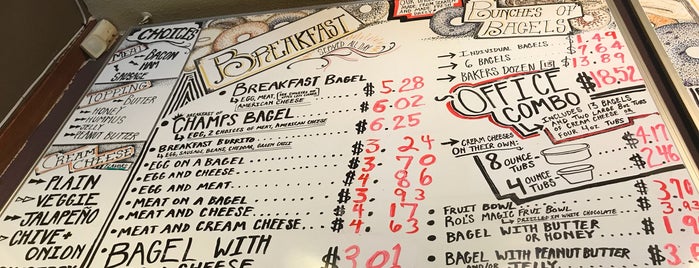 CHOICE
MEAT
BACON
HAM
SAUSAGE
TOPPING
BUTTER
HONEY
HUMMUS
JELLY
PEANUT BUTTER
CREAM CHEESE
FLAVORS
PLAIN
VEGGIE
JALAPEÑO
CHIVE +
ONION
BREAKFAST
SERVED ALL DAY
BREAKFAST BAGEL $5.28
EGG, MEAT,
AMERICAN CHEESE
$6.02
BREAKFAST OF
CHAMPS BAGEL $6.25
EGG, 2 CHOICES OF MEAT, AMERICAN CHEESE
BREAKFAST BURRITO $3.24
EGG, SAUSAGE, BEANS, CHEDDAR, GREEN CHILI
EGG ON A BAGEL $3.70
EGG AND CHEESE $4.86
EGG AND MEAT $3.93
MEAT ON A BAGEL $4.17
MEAT AND CHEESE $4.63
MEAT AND CREAM CHEESE
BAGEL WITH $3.01
CHEESE
BUNCHES OF
BAGELS
INDIVIDUAL BAGELS $1.49
6 BAGELS $7.64
BAKERS DOZEN [13] $13.89
OFFICE $18.52
COMBO
INCLUDES 13 BAGELS
AND TWO LARGE 8oz TUBS
OF CREAM CHEESE OR
FOUR 4oz. TUBS
CREAM CHEESES
ON THEIR OWN:
8 OUNCE TUBS $4.17
4 OUNCE TUBS $2.46
FRUIT BOWL $3.70
ROL'S MAGIC FRUIT BOWL
DRIZZLED IN WHITE CHOCOLATE
BAGEL WITH BUTTER
OR HONEY
BAGEL WITH PEANUT BUTTER
AND/OR JELLY